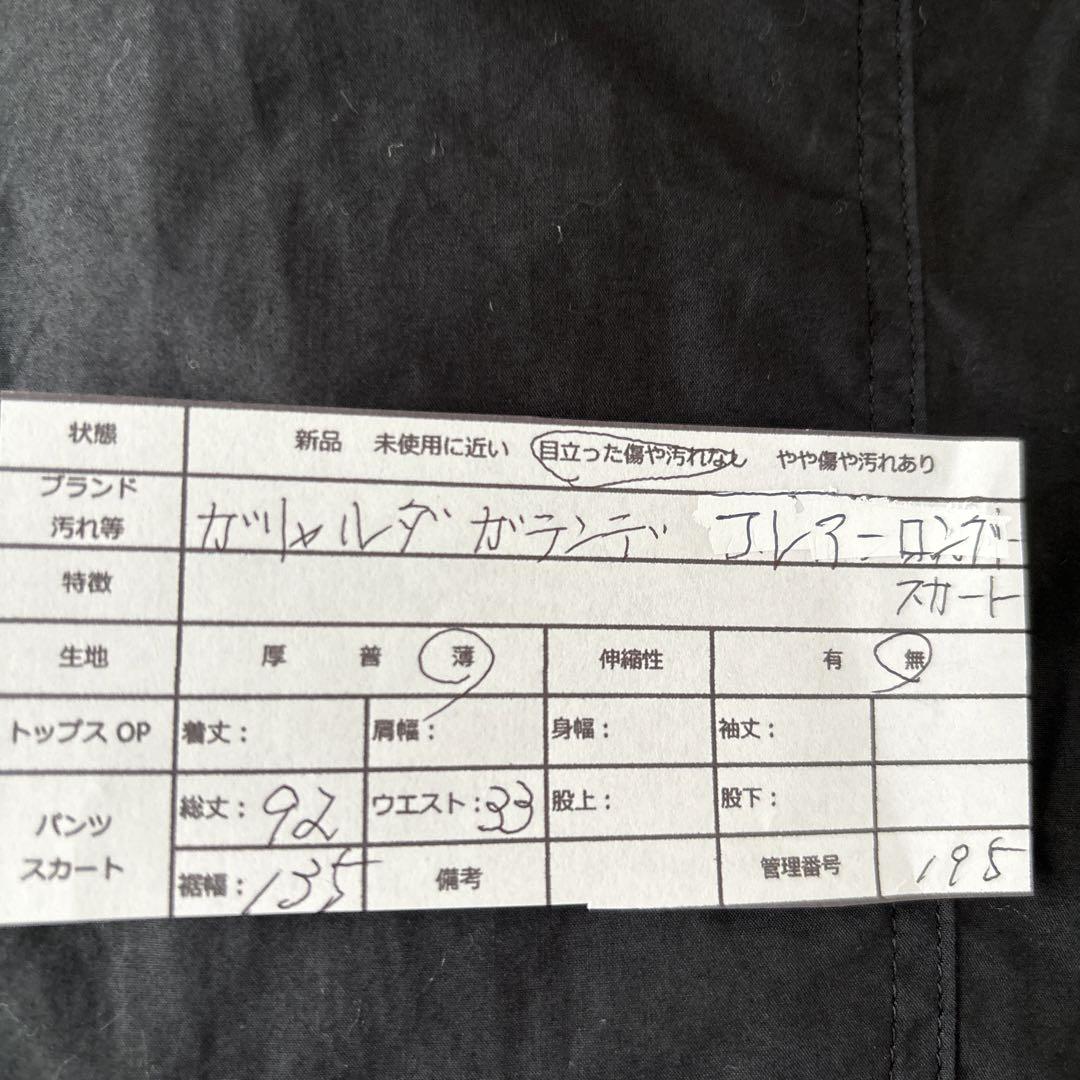 状態 新品 未使用に近い 目立った傷や汚れなし やや傷や汚れあり
ブランド
汚れ等 ガリャルダ ガランテ フレアーロング
特徴 スカート
生地 厚 普 薄 伸縮性 有 無
トップス OP 着丈: 肩幅: 身幅: 袖丈:
パンツ
スカート
総丈: 92 ウエスト: 33 股上: 股下:
裾幅: 135 備考 管理番号 195